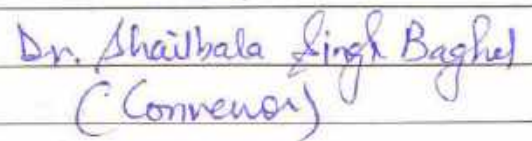 Dr. Shailbala Singh Baghel
(Convenor)